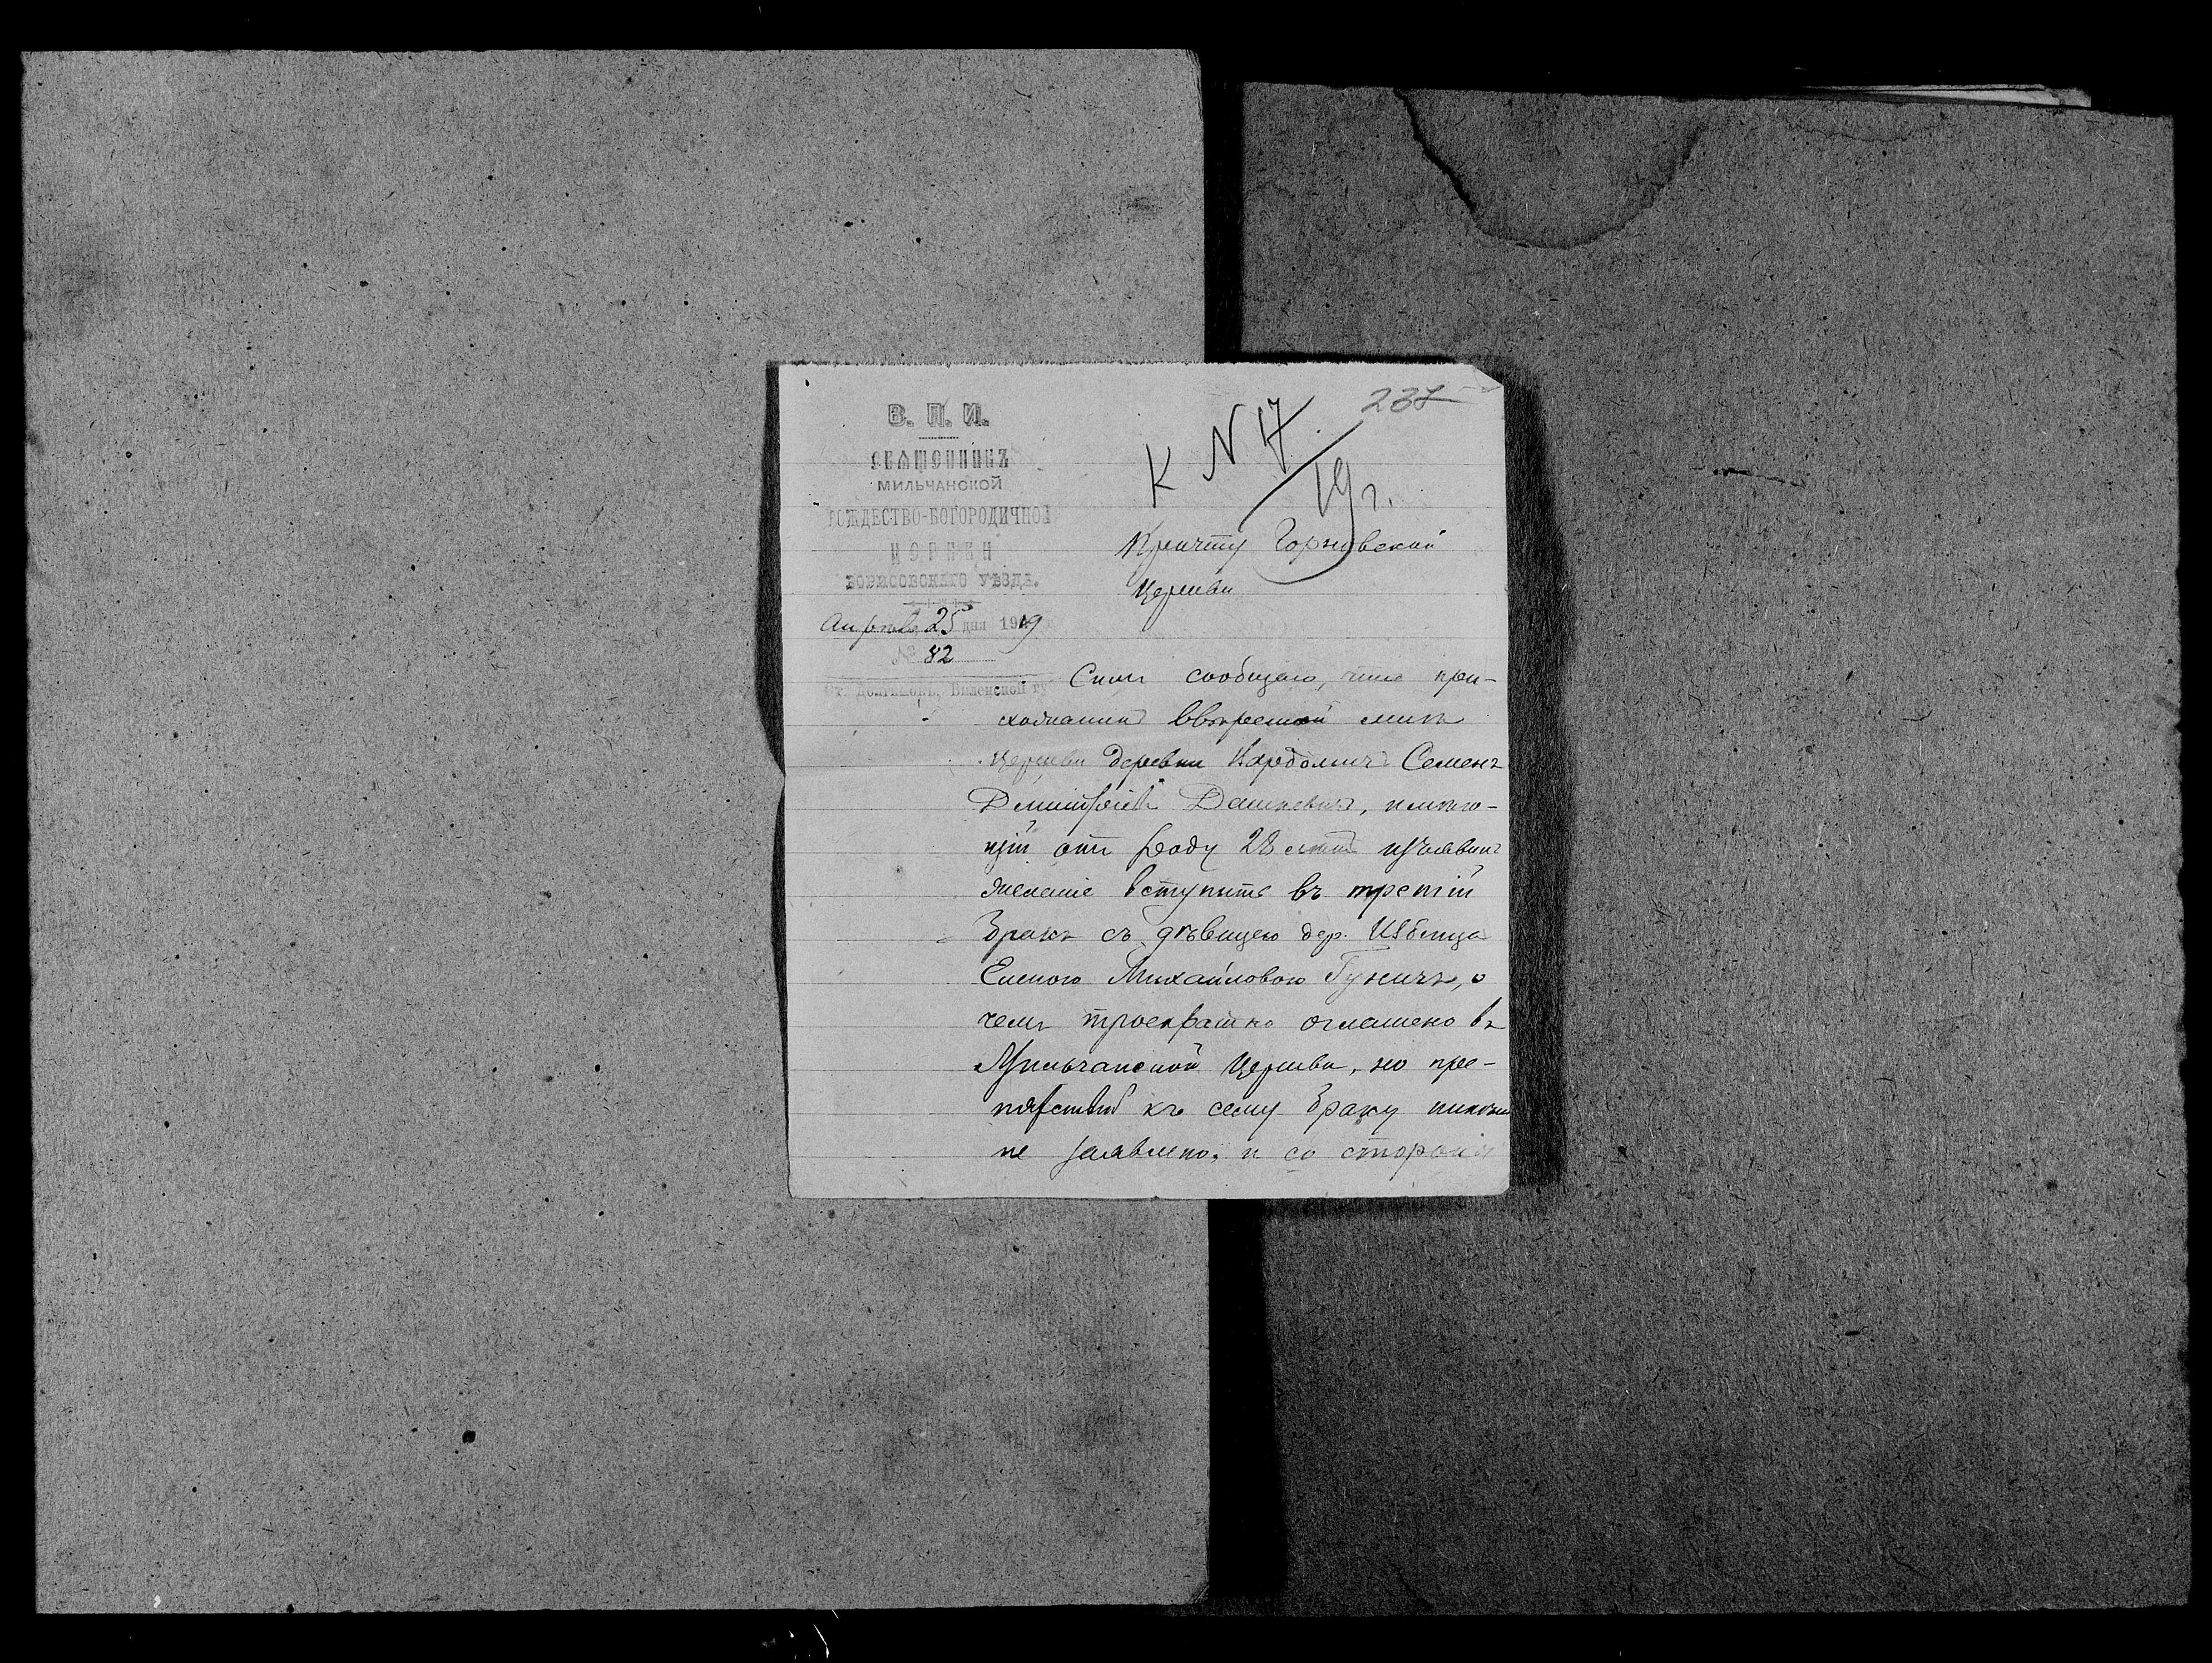 В. П. И.
СВЯЩЕННИКЪ
МИЛЬЧАНСКОЙ
РОЖДЕСТВО-БОГОРОДИЧНОЙ
ЦЕРКВИ
БОРИСОВСКАГО УѢЗДА.
Апрѣля 25 дня 1919
№ 82
Ст. Долгиново, Виленской гу
237
К N 17/19 г.
Причту Горновской
Церкви
Симъ сообщаю, что при-
хожанинъ ввѣренной мнѣ
церкви деревни Семенъ
Димитріевъ Дашкевичъ, имѣю-
щій отъ роду 28 лѣтъ изъявилъ
желаніе вступить въ третій
бракъ съ дѣвицею дер.
Еленою Михайловою о
чемъ троекратно оглашено въ
Мильчанской Церкви, но пре-
пятствій къ сему браку никѣмъ
не заявлено, и со стороны